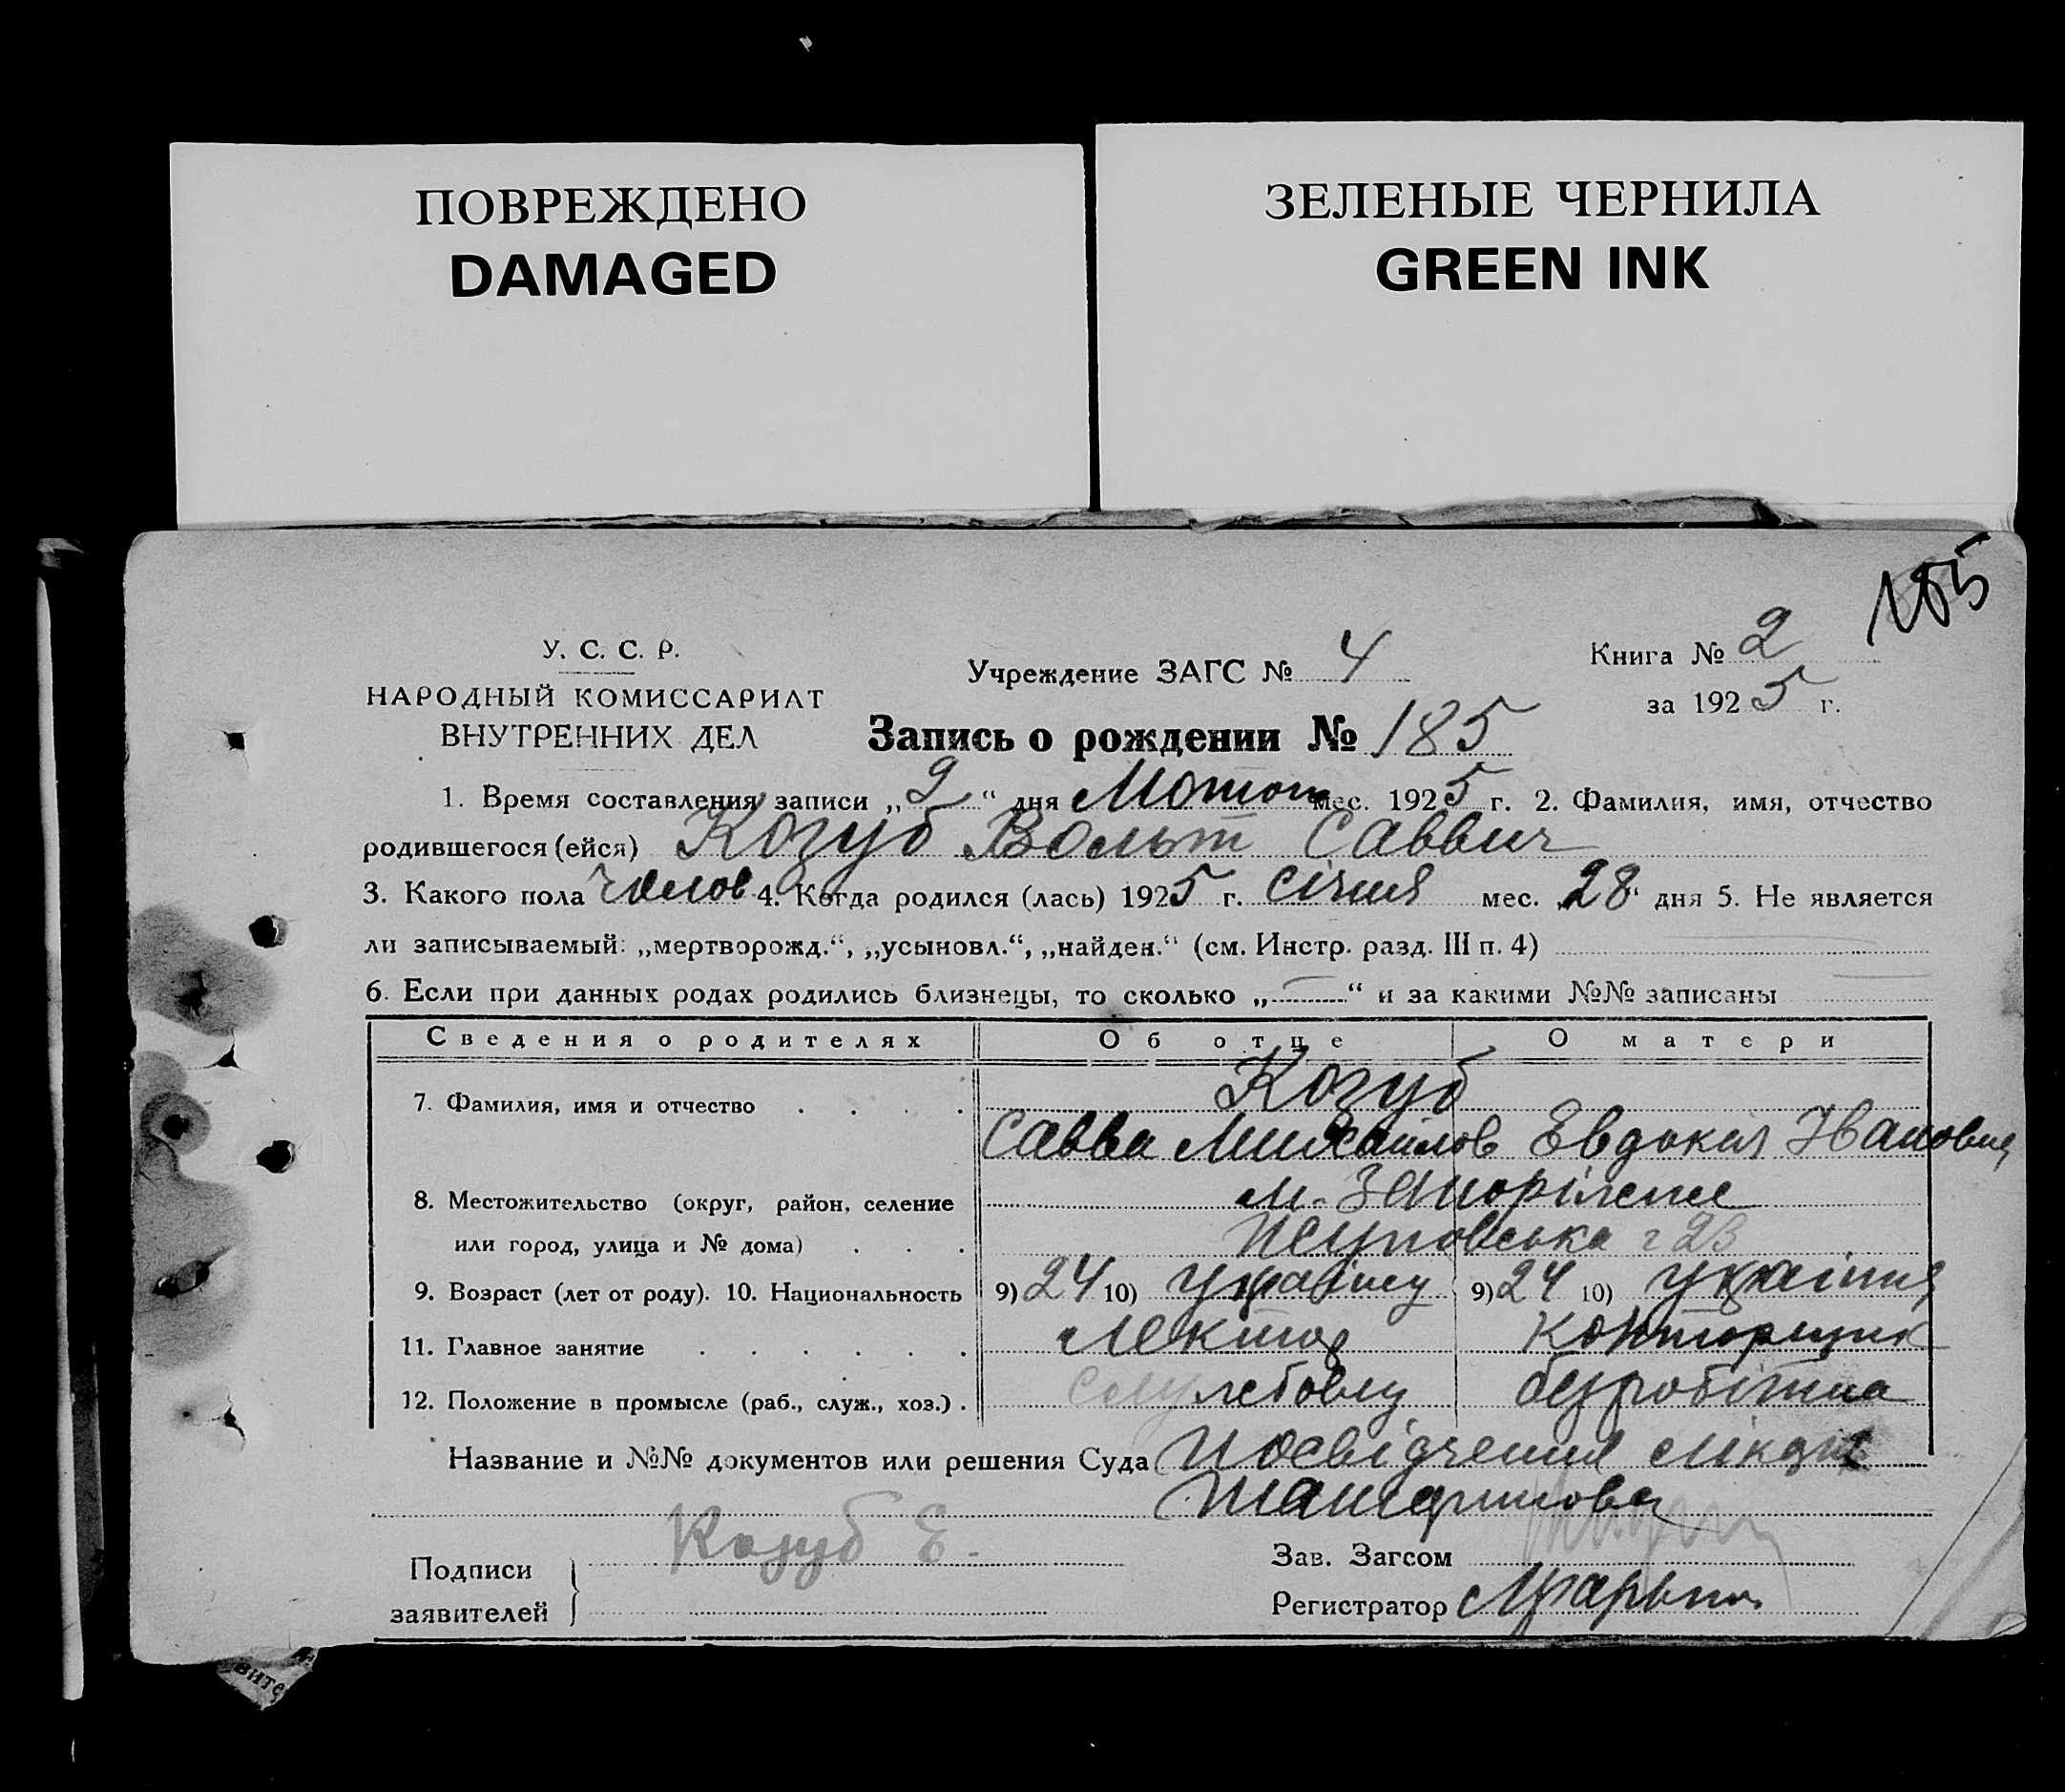 ПОВРЕЖДЕНО
DAMAGED
ЗЕЛЕНЫЕ ЧЕРНИЛА
GREEN INK
185
У. С. С. Р.
НАРОДНЫЙ КОМИССАРИАТ
ВНУТРЕННИХ ДЕЛ
Учреждение ЗАГС № 4
Книга № 2
за 1925 г.
Запись о рождении № 185
1. Время составления записи „2“ дня Лютого мес. 1925 г. 2. Фамилия, имя, отчество
родившегося (ейся) Козуб Вольт Саввич
3. Какого пола чолов 4. Когда родился (лась) 1925 г. січня мес. „28“ дня 5. Не является
ли записываемый: „мертворожд.“, „усыновл.“, „найден.“ (см. Инстр. разд. III п. 4)
6. Если при данных родах родились близнецы, то сколько „—“ и за какими №№ записаны
Сведения о родителях Об отце О матери
7. Фамилия, имя и отчество Козуб
Савва Михайлов Евдокия Ивановна
8. Местожительство (округ, район, селение м. Запоріжжє
или город, улица и № дома) 23
9. Возраст (лет от роду). 10. Национальность 9) 24 10) Українец 9) 24 10) Українка
11. Главное занятие Лектор Конторщик
12. Положение в промысле (раб., служ., хоз.) службовец безробітна
Название и №№ документов или решения Суда Посвідчення лікаря
Подписи
заявителей
Козуб Е.
Зав. Загсом
Регистратор
вите